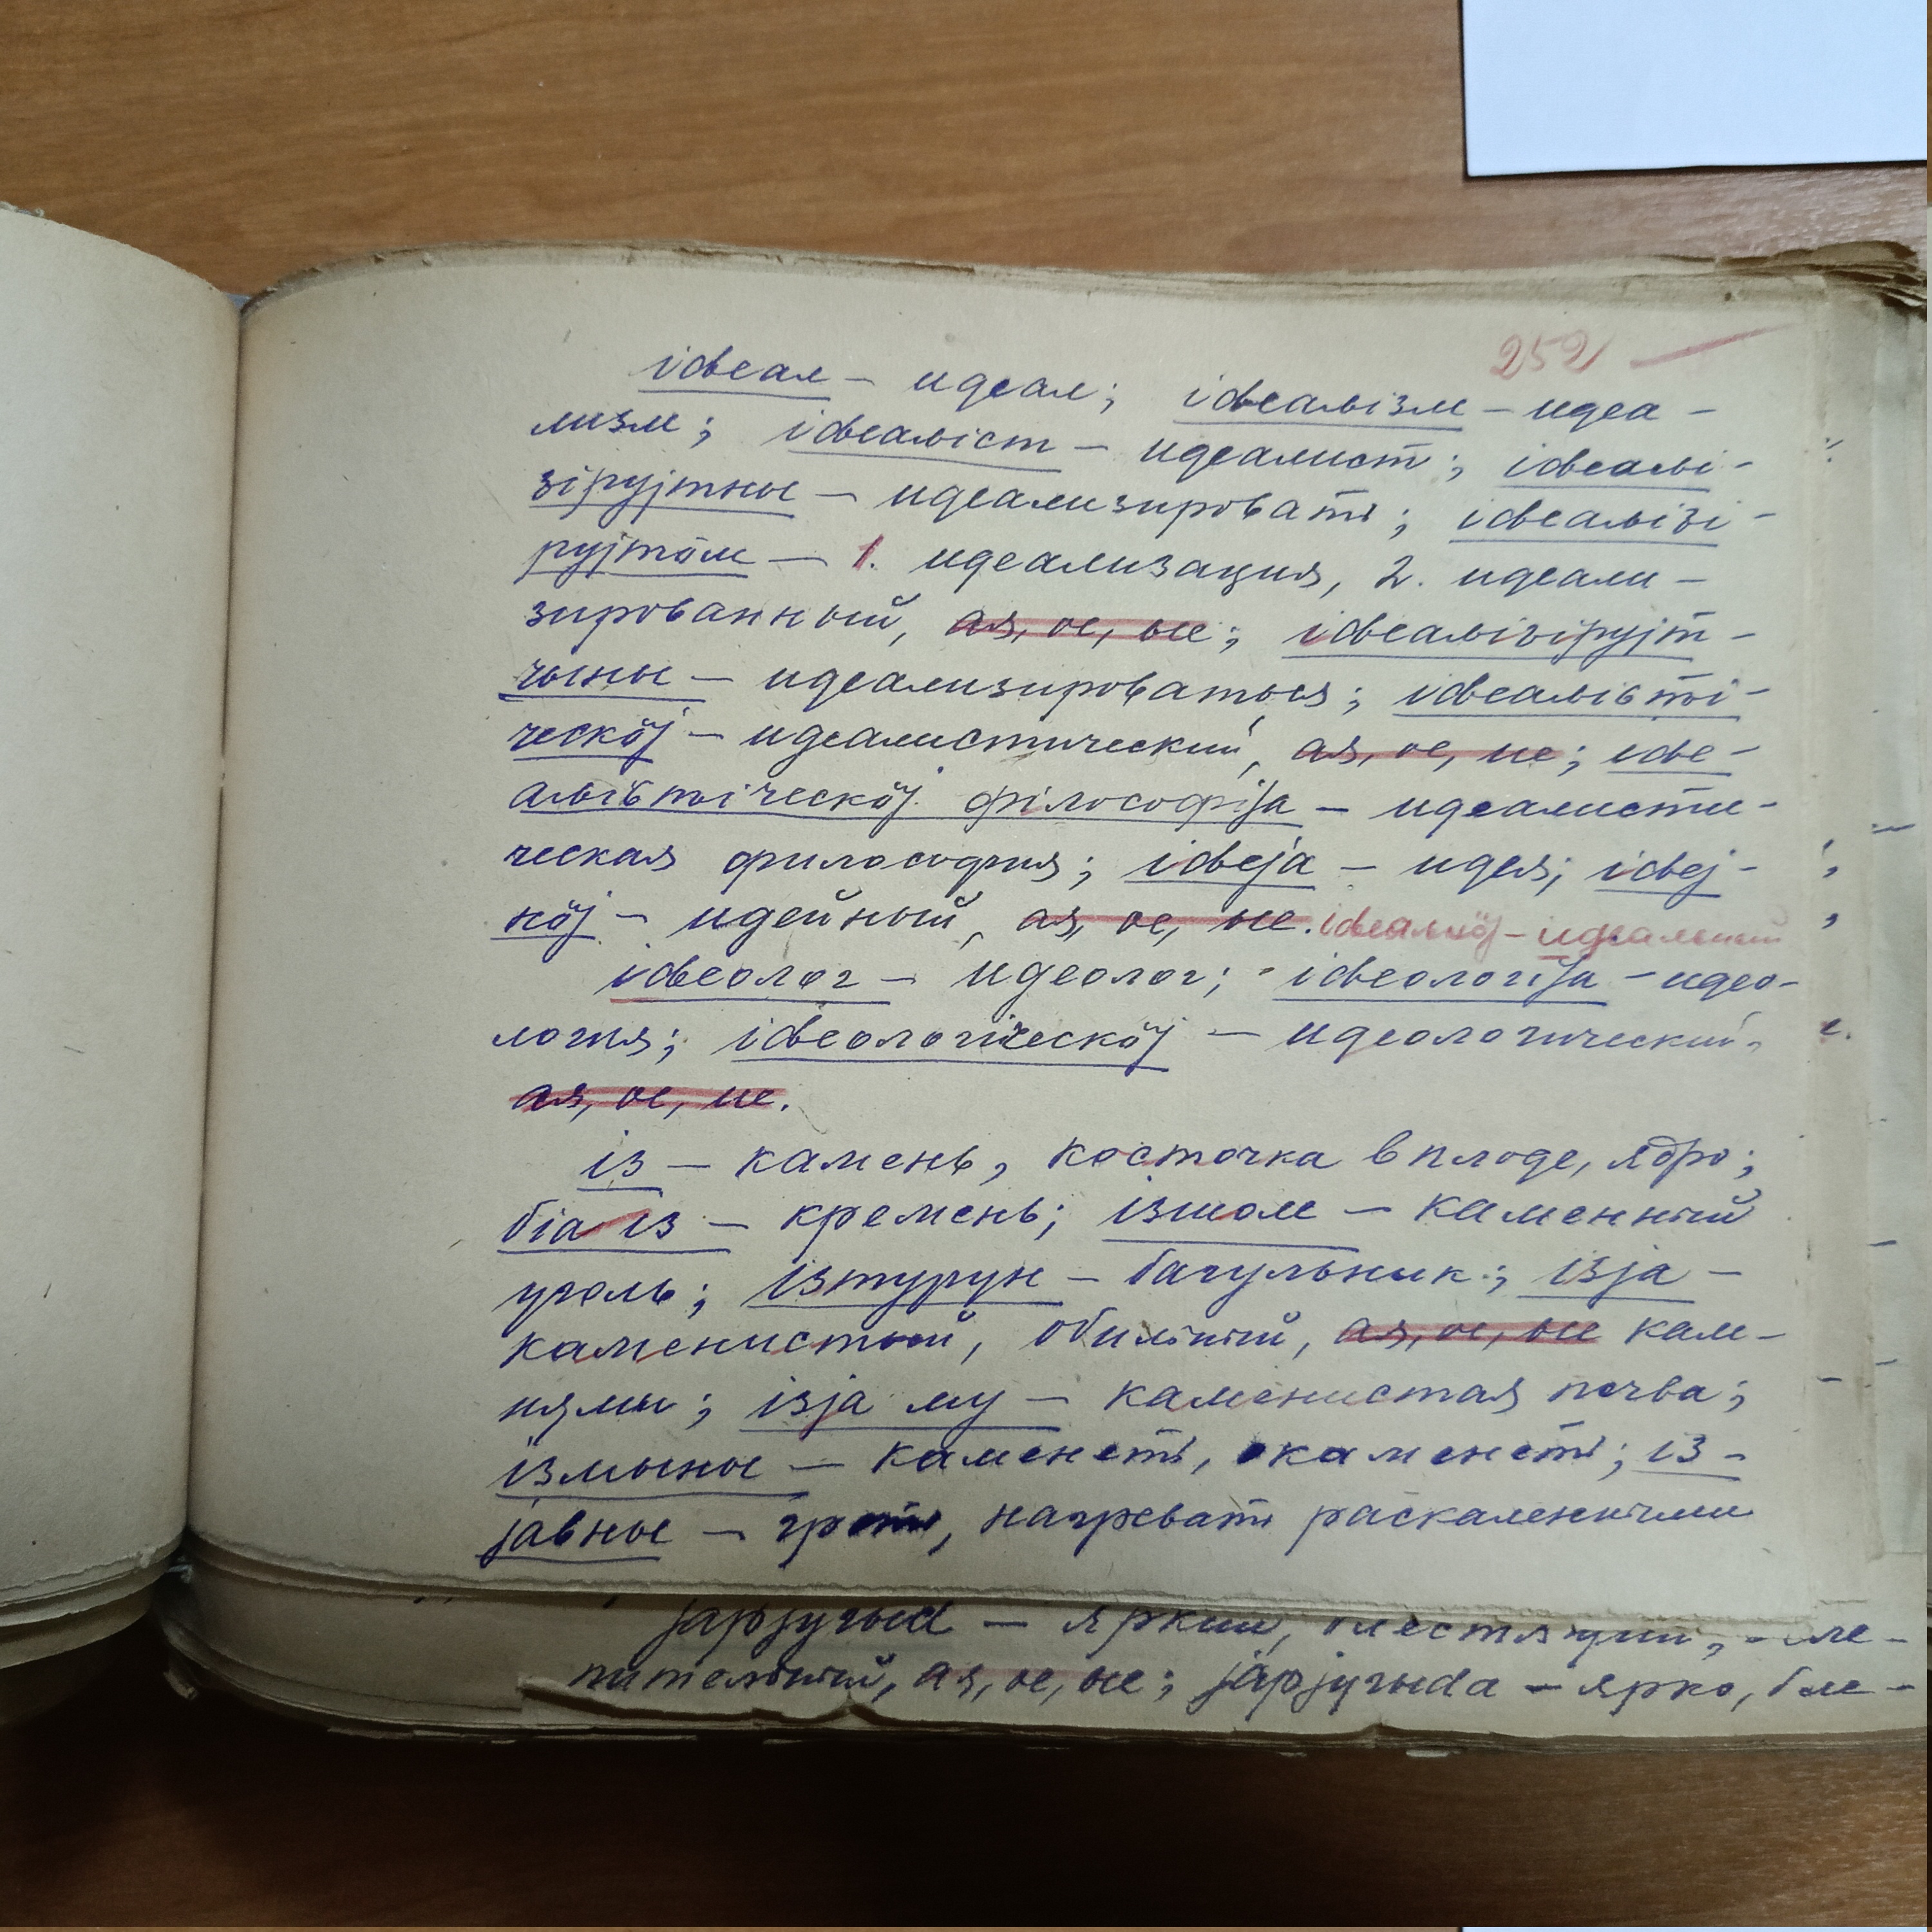 252
ідеал – идеал; ідеаԉізм – идеа-
лизм; ідеаԉіст – идеалист; ідеаԉі-
зірујтны – идеализировать; ідеаԉізі-
рујтӧм – 1. идеализация, 2. идеали-
зированный, ая, ое, ые; ідеаԉізірујт-
чыны – идеализироваться; ідеаԉісті-
ческӧј – идеалистический, ая, ое, ие; іде-
аԉістіческӧј філософіја – идеалисти-
ческая философия; ідеја – идея; ідеј-
нӧј – идейный, ая, ое, ые. ідеалнӧј – идеальный
ідеолог – идеолог; ідеологіја – идео-
логия; ідеологіческӧј – идеологический,
ая, ое, ие.
із – камень, косточка в плоде, ядро;
біа із – кремень; ізшом – каменный
уголь; ізтурун – багульник; ізја –
каменистый, обильный, ая, ое, ые кам-
нями; ізја му – каменистая почва;
ізмыны – каменеть, окаменеть; із-
јавны – греть, нагревать раскаленными
јарјугыԁ – яркий, блестящий, осле-
пительный, ая, ое, ые; јарјугыԁа – ярко, бле-